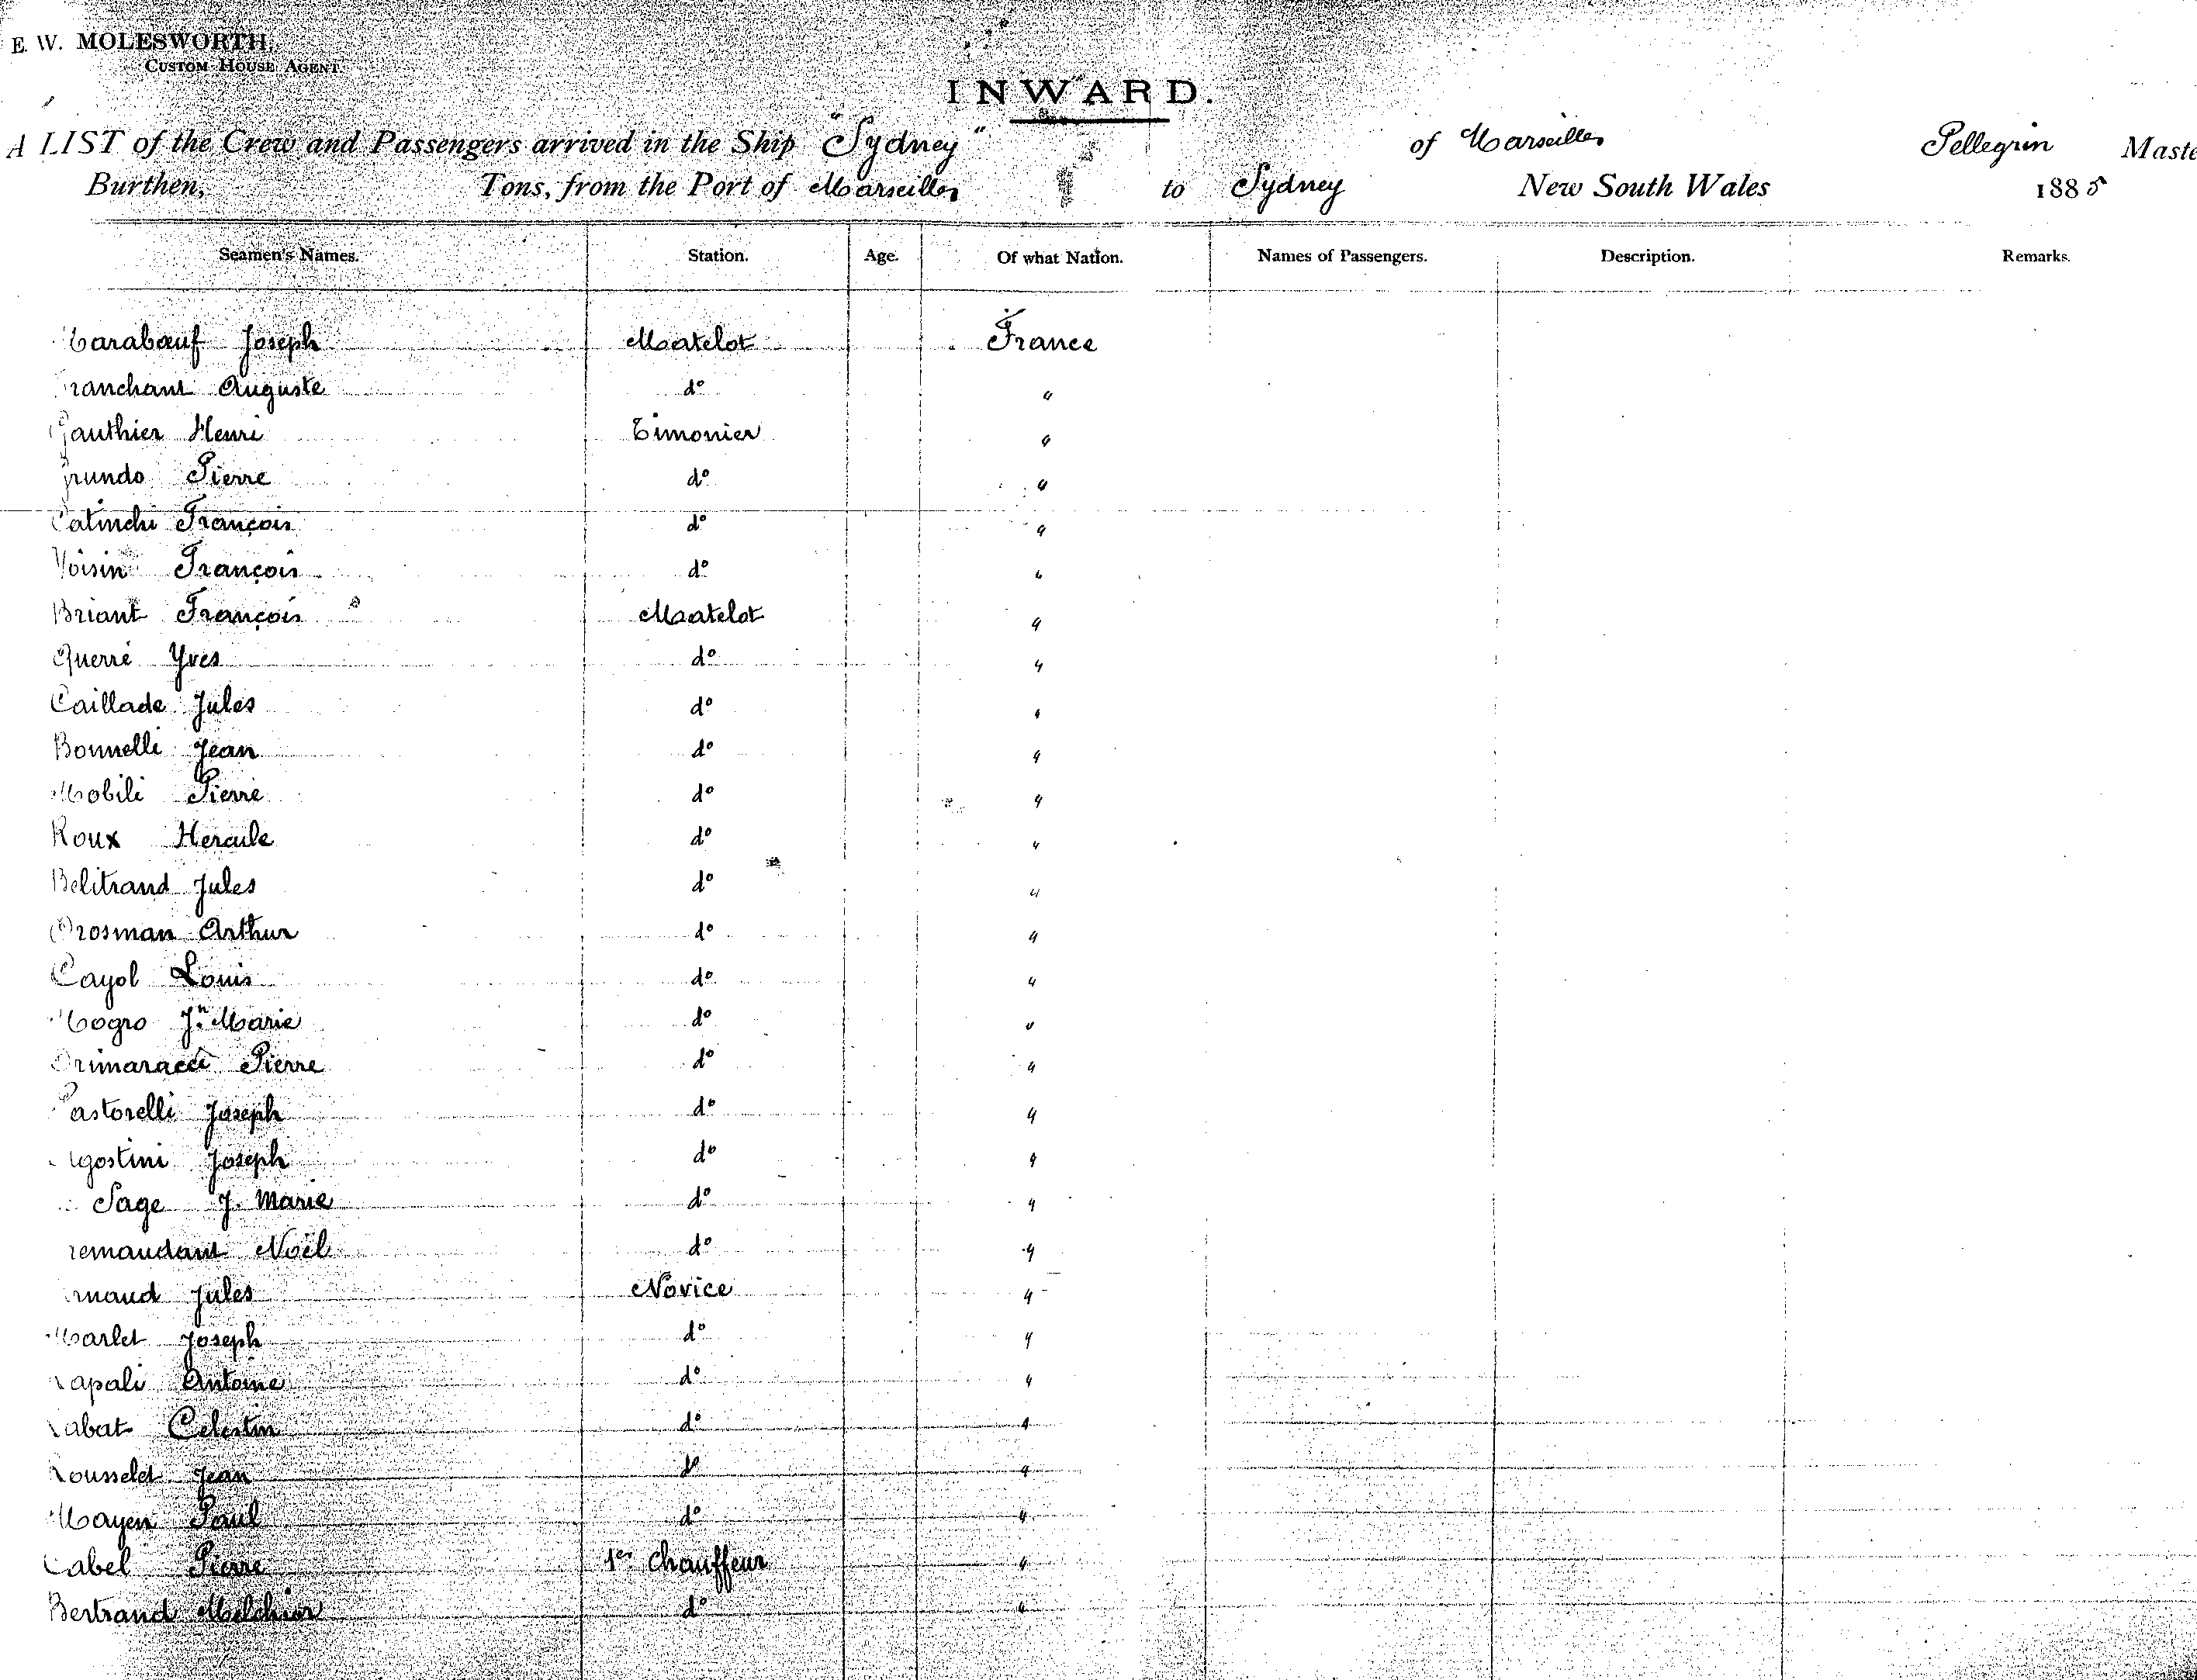 E. W. MOLESWORTH,
CUSTOM HOUSE AGENT.
INWARD.
A LIST of the Crew and Passengers arrived in the Ship "Sydney" of Marseilles Pellegrin Maste
Burthen, Tons, from the Port of Marseilles to Sydney New South Wales 1885
Seamen's Names. Station. Age. Of what Nation. Names of Passengers. Description. Remarks.
Marabœuf Joseph Matelot France
ranchant Auguste do "
Gauthier Henri Timonier "
Grundo Pierre do "
Catinchi François do "
Voisin François do "
Briant François Matelot "
Querré Yves do "
Caillade Jules do "
Bonnelli Jean do "
Mobili Pierre do "
Roux Hercule do "
Belitrand Jules do "
Grosman Arthur do "
Cayol Louis do "
Mogro Jn Marie do "
Orimaracci Pierre do "
Pastorelli Joseph do "
Agostini Joseph do "
Sage J. Marie do "
remaudant Noël do "
rnaud Jules Novice "
Marlet Joseph do "
apali Antoine do "
abat Celestin do "
Rousselet Jean do "
Mayen Paul do "
Cabel Pierre 1er Chauffeur "
Bertrand Melchior do "